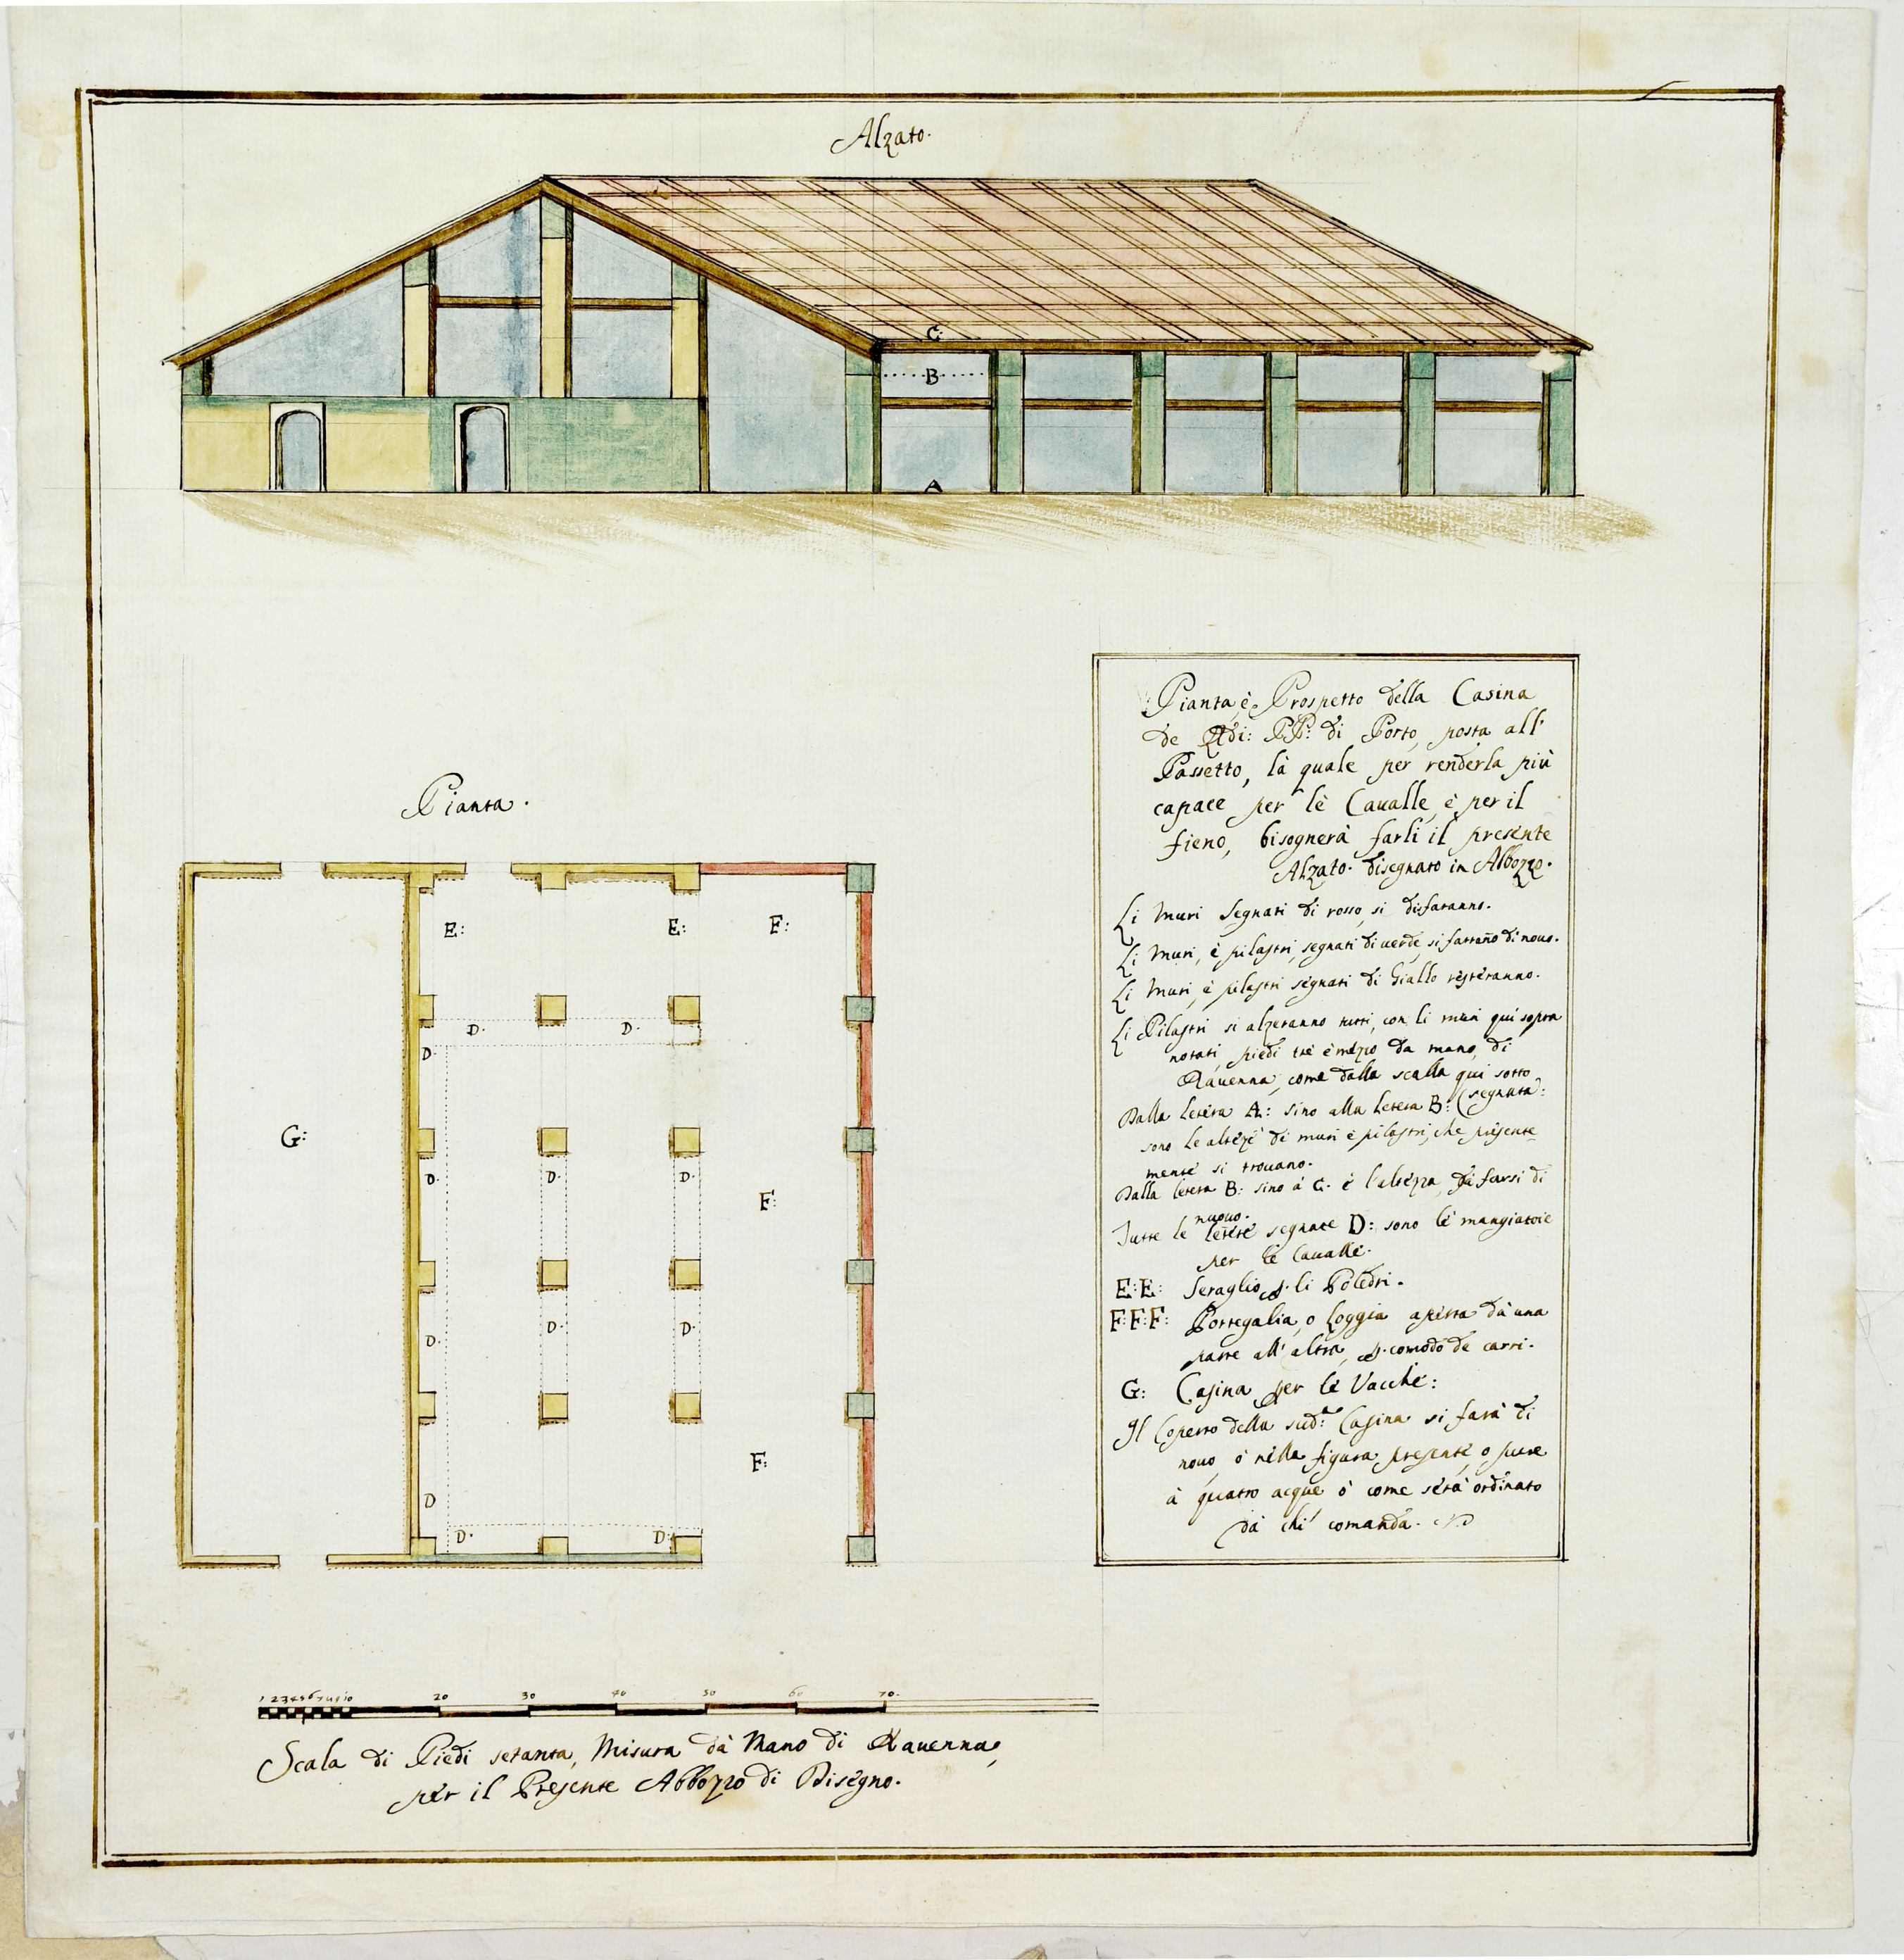 Alzato.
C:
B
A
Pianta.
E: E: F:
D. D.
D.
G:
D. D. D.
F:
D. D. D.
F:
D
D. D:
Pianta, è Prospetto della Casina
de Rdi: PP: di Porto, posta all'
Passetto, là quale per renderla più
capace per lè Caualle, è per il
fieno, bisognerà farli il presente
Alzato. disegnato in Abbozzo.
Li Muri Segnati di rosso, si disfaranno.
Li Muri, è pilastri, segnati di uerde, si farrano di nouo.
Li Muri, è pilastri segnati di Giallo resteranno.
Li Pilastri si alzeranno tutti, con li muri quì sopra
notati, piedi trè è mezo da mano, di
Rauenna, come dalla scalla quì sotto
(segnata:
Dalla letera A: sino alla letera B:
sono le altezè di muri è pilastri, che presente
mente si trouano.
Dalla letera B: sino à C. è l'altezza, da farsi di
nuouo.
Tutte le letere segnate D: sono lè mangiatoie
per lè Caualle.
E:E: Seraglio p. li Poledri.
F:F:F: Portegalia, o Loggia aperta dà una
parte all'altra, p. comodo de carri.
G: Casina per lè Vacchè:
Il Coperto della sud.a Casina si farà di
nouo, ò nella figura presente, o pure
à quatro acque ò come serà ordinato
dà chi comanda.
1 2 3 4 5 6 7 8 9 10 20 30 40 50 60 70.
Scala di Piedi setanta, Misura dà Mano di Rauenna,
per il Presente Abbozzo di Disegno.